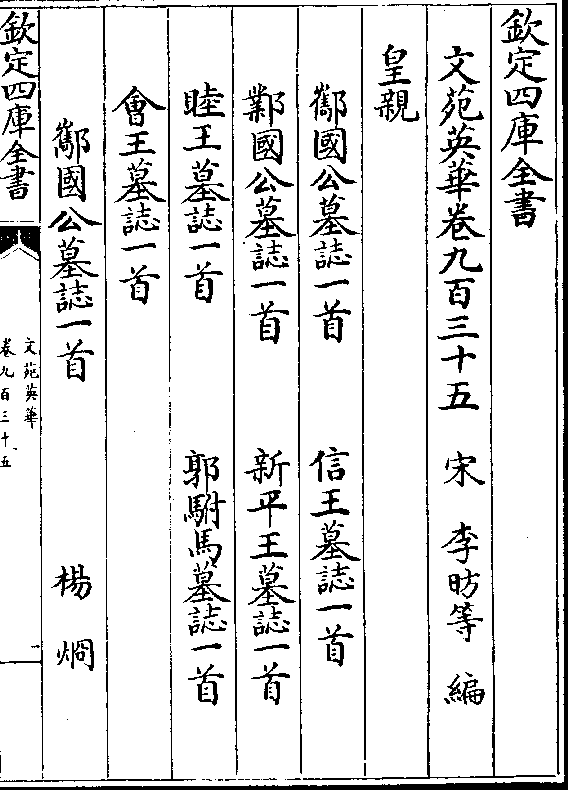 欽定四庫全書
文苑英華卷九百三十五 宋 李昉等 編
皇親
酅國公墓誌一首 信王墓誌一首
鄴國公墓誌一首 新平王墓誌一首
睦王墓誌一首 郭駙馬墓誌一首
會王墓誌一首
酅國公墓誌一首 楊烱
欽定四庫全書
文苑英華
卷九百三十五
一